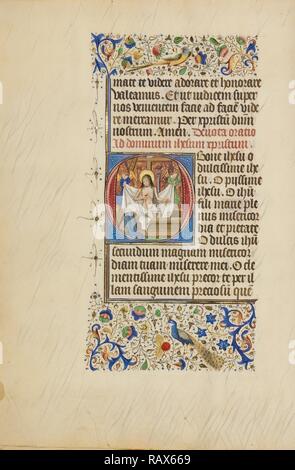 mate et videre adorare et honorare
valeamus. Et ut iudicem super
nos venientem facie ad faciē vide
re mereamur. Per xpristū dnm
nostrum. Amen. Devota oratio
Ad dominum ihesum xpristum.
O bone ihesu o
dulcissime ihe
su. O piissime
ihesu. O ihū
fili marie ple
nus misericor
dia et pietate
O dulcis ihū
secundum magnam misericor
diam tuam miserere mei. O cle
mentissime ihesu precor te per il
lam sanguinem preciosū quē
alamy
Image ID: RAX669
www.alamy.com